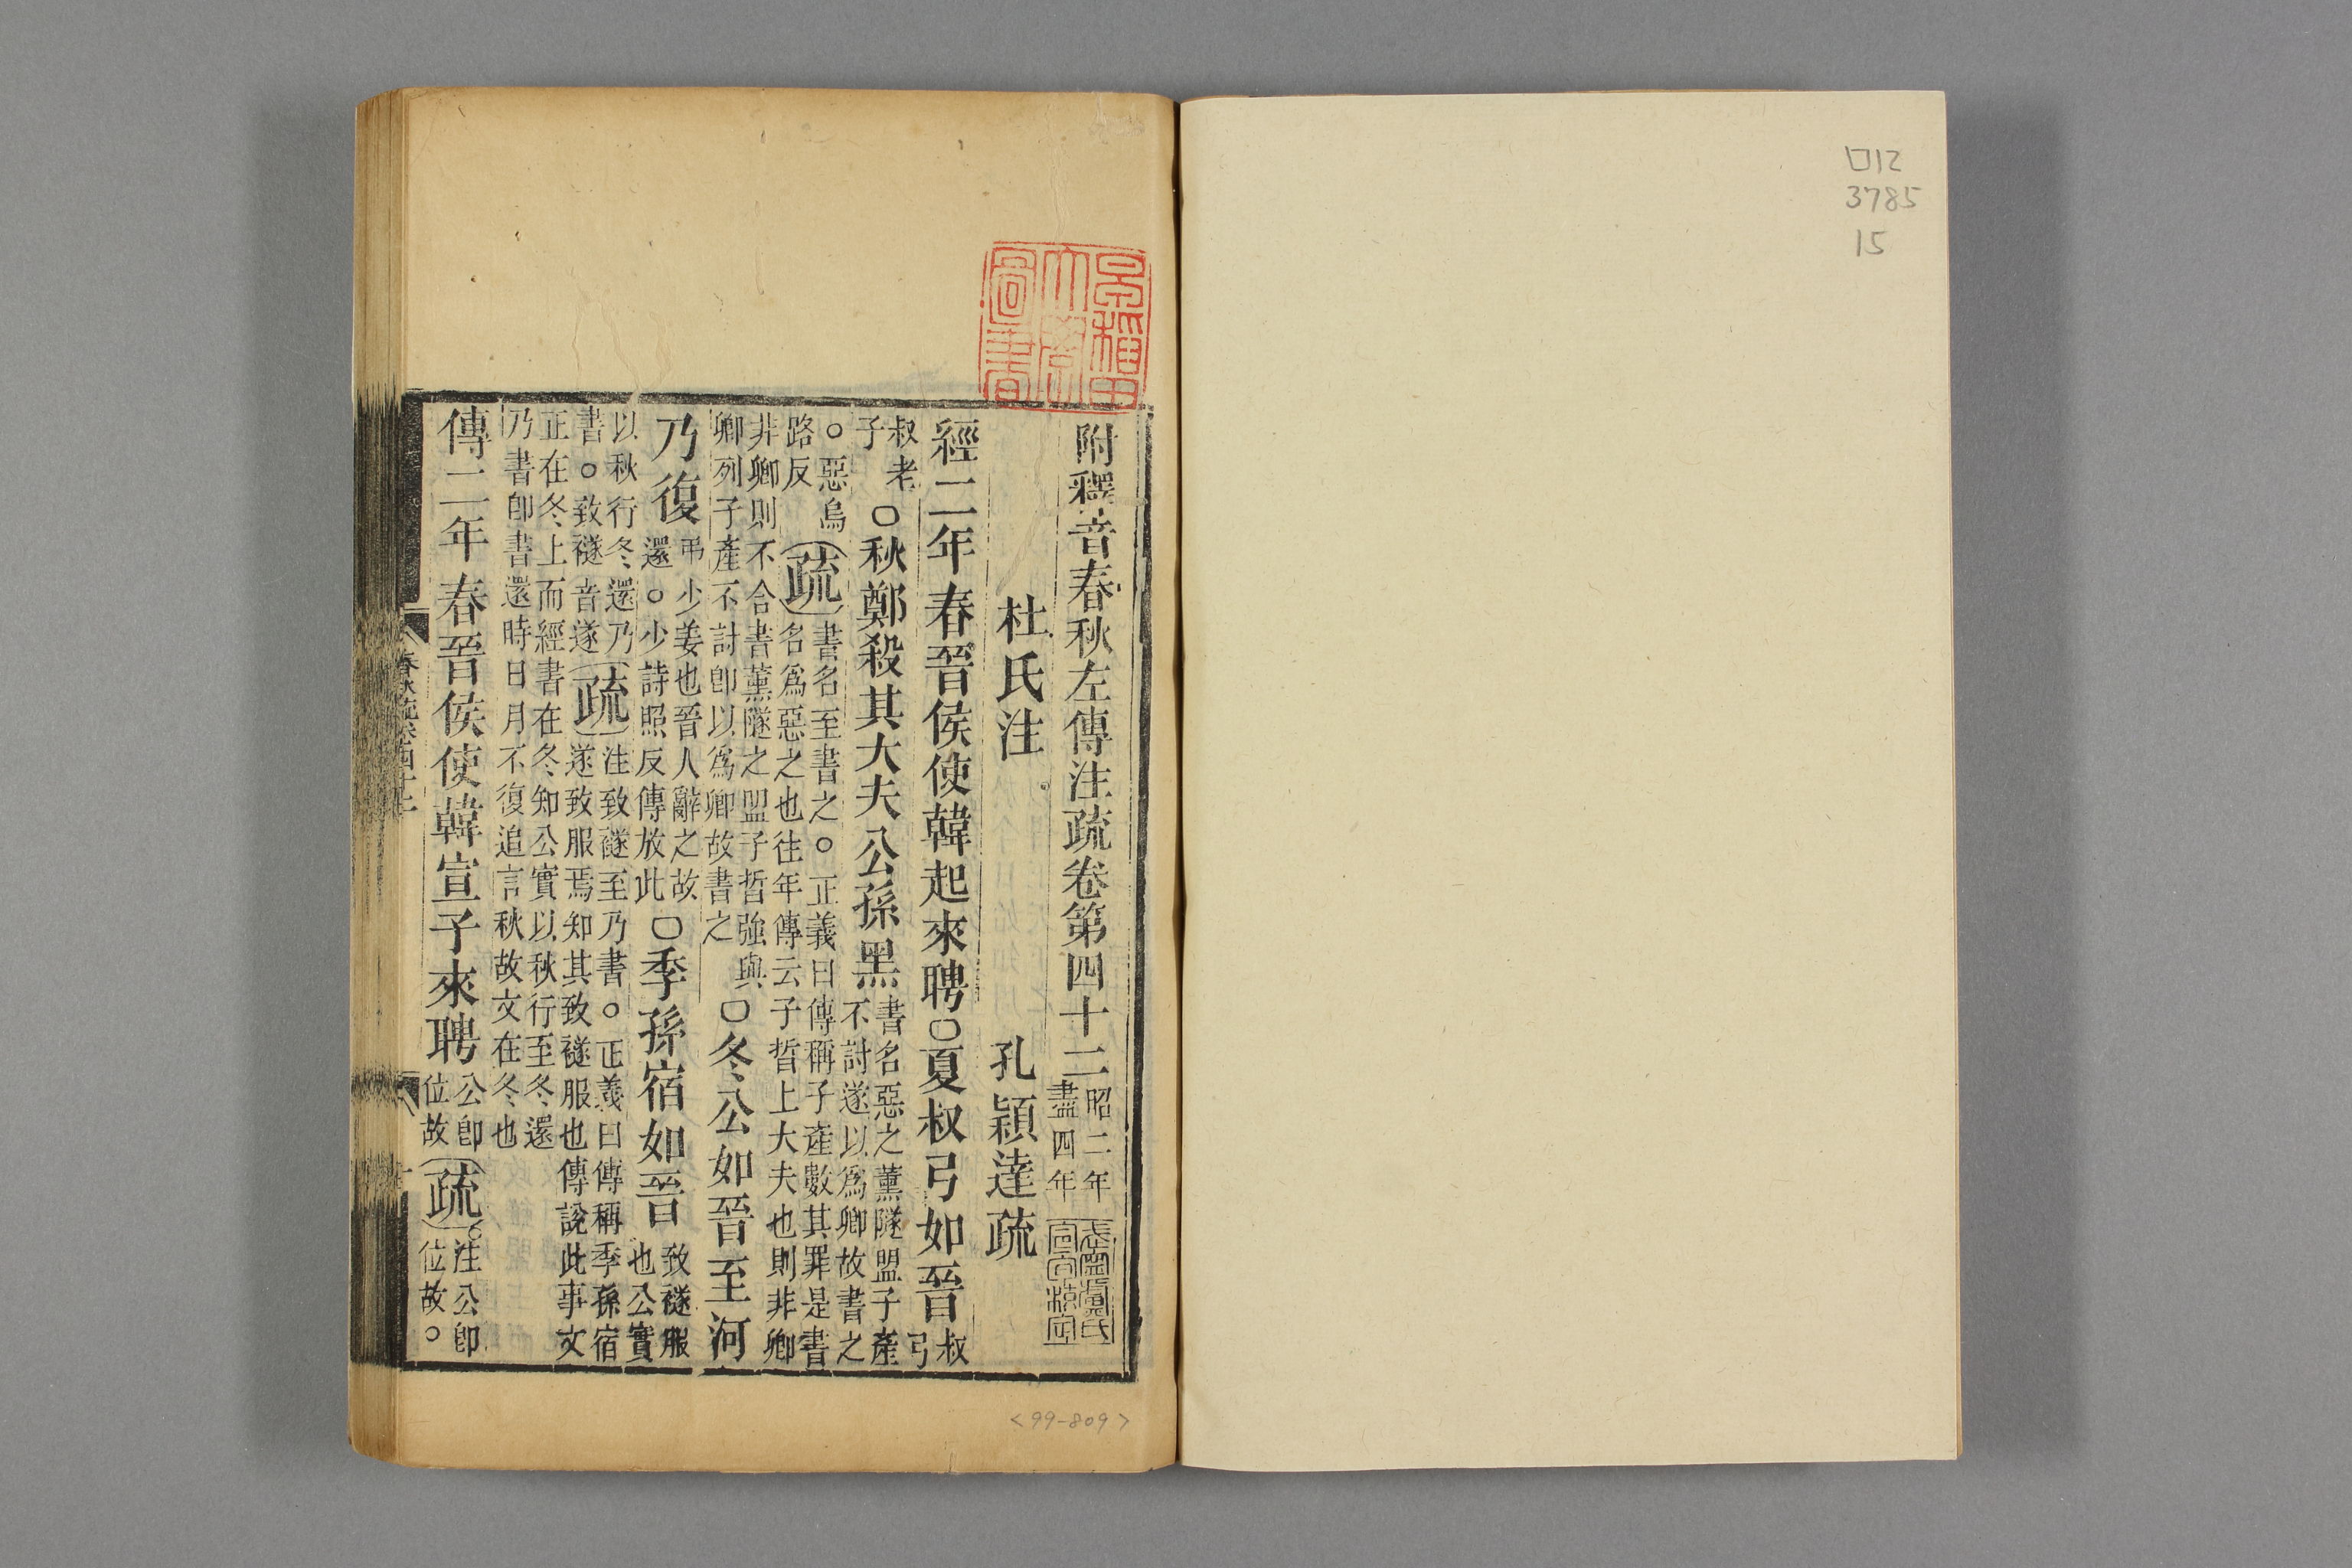 口12
3785
15
早稻田大學圖書
附釋音春秋左傳注疏卷第四十二 昭二年盡四年
杜氏注 孔穎達疏
經二年春晉侯使韓起來聘○夏叔弓如晉 叔弓
叔老子 ○秋鄭殺其大夫公孫黑 書名惡之薰隧盟子產不討遂以爲卿故書之
○惡烏路反 疏 書名至書之○正義曰傳稱子產數其罪是書名爲惡之也往年傳云子晳上大夫也則非卿
非卿則不合書薰隧之盟子晳強與卿列子產不討卽以爲卿故書之 ○冬公如晉至河
乃復 弔少姜也晉人辭之故還○少詩照反傳放此 ○季孫宿如晉 致襚服也公實
以秋行冬還乃書○致襚音遂 疏 注致襚至乃書○正義曰傳稱季孫宿遂致服焉知其致襚服也傳說此事文
正在冬上而經書在冬知公實以秋行至冬還乃書卽書還時日月不復追言秋故文在冬也
傳二年春晉侯使韓宣子來聘 公卽位故 疏 注公卽位故○
<99-809>